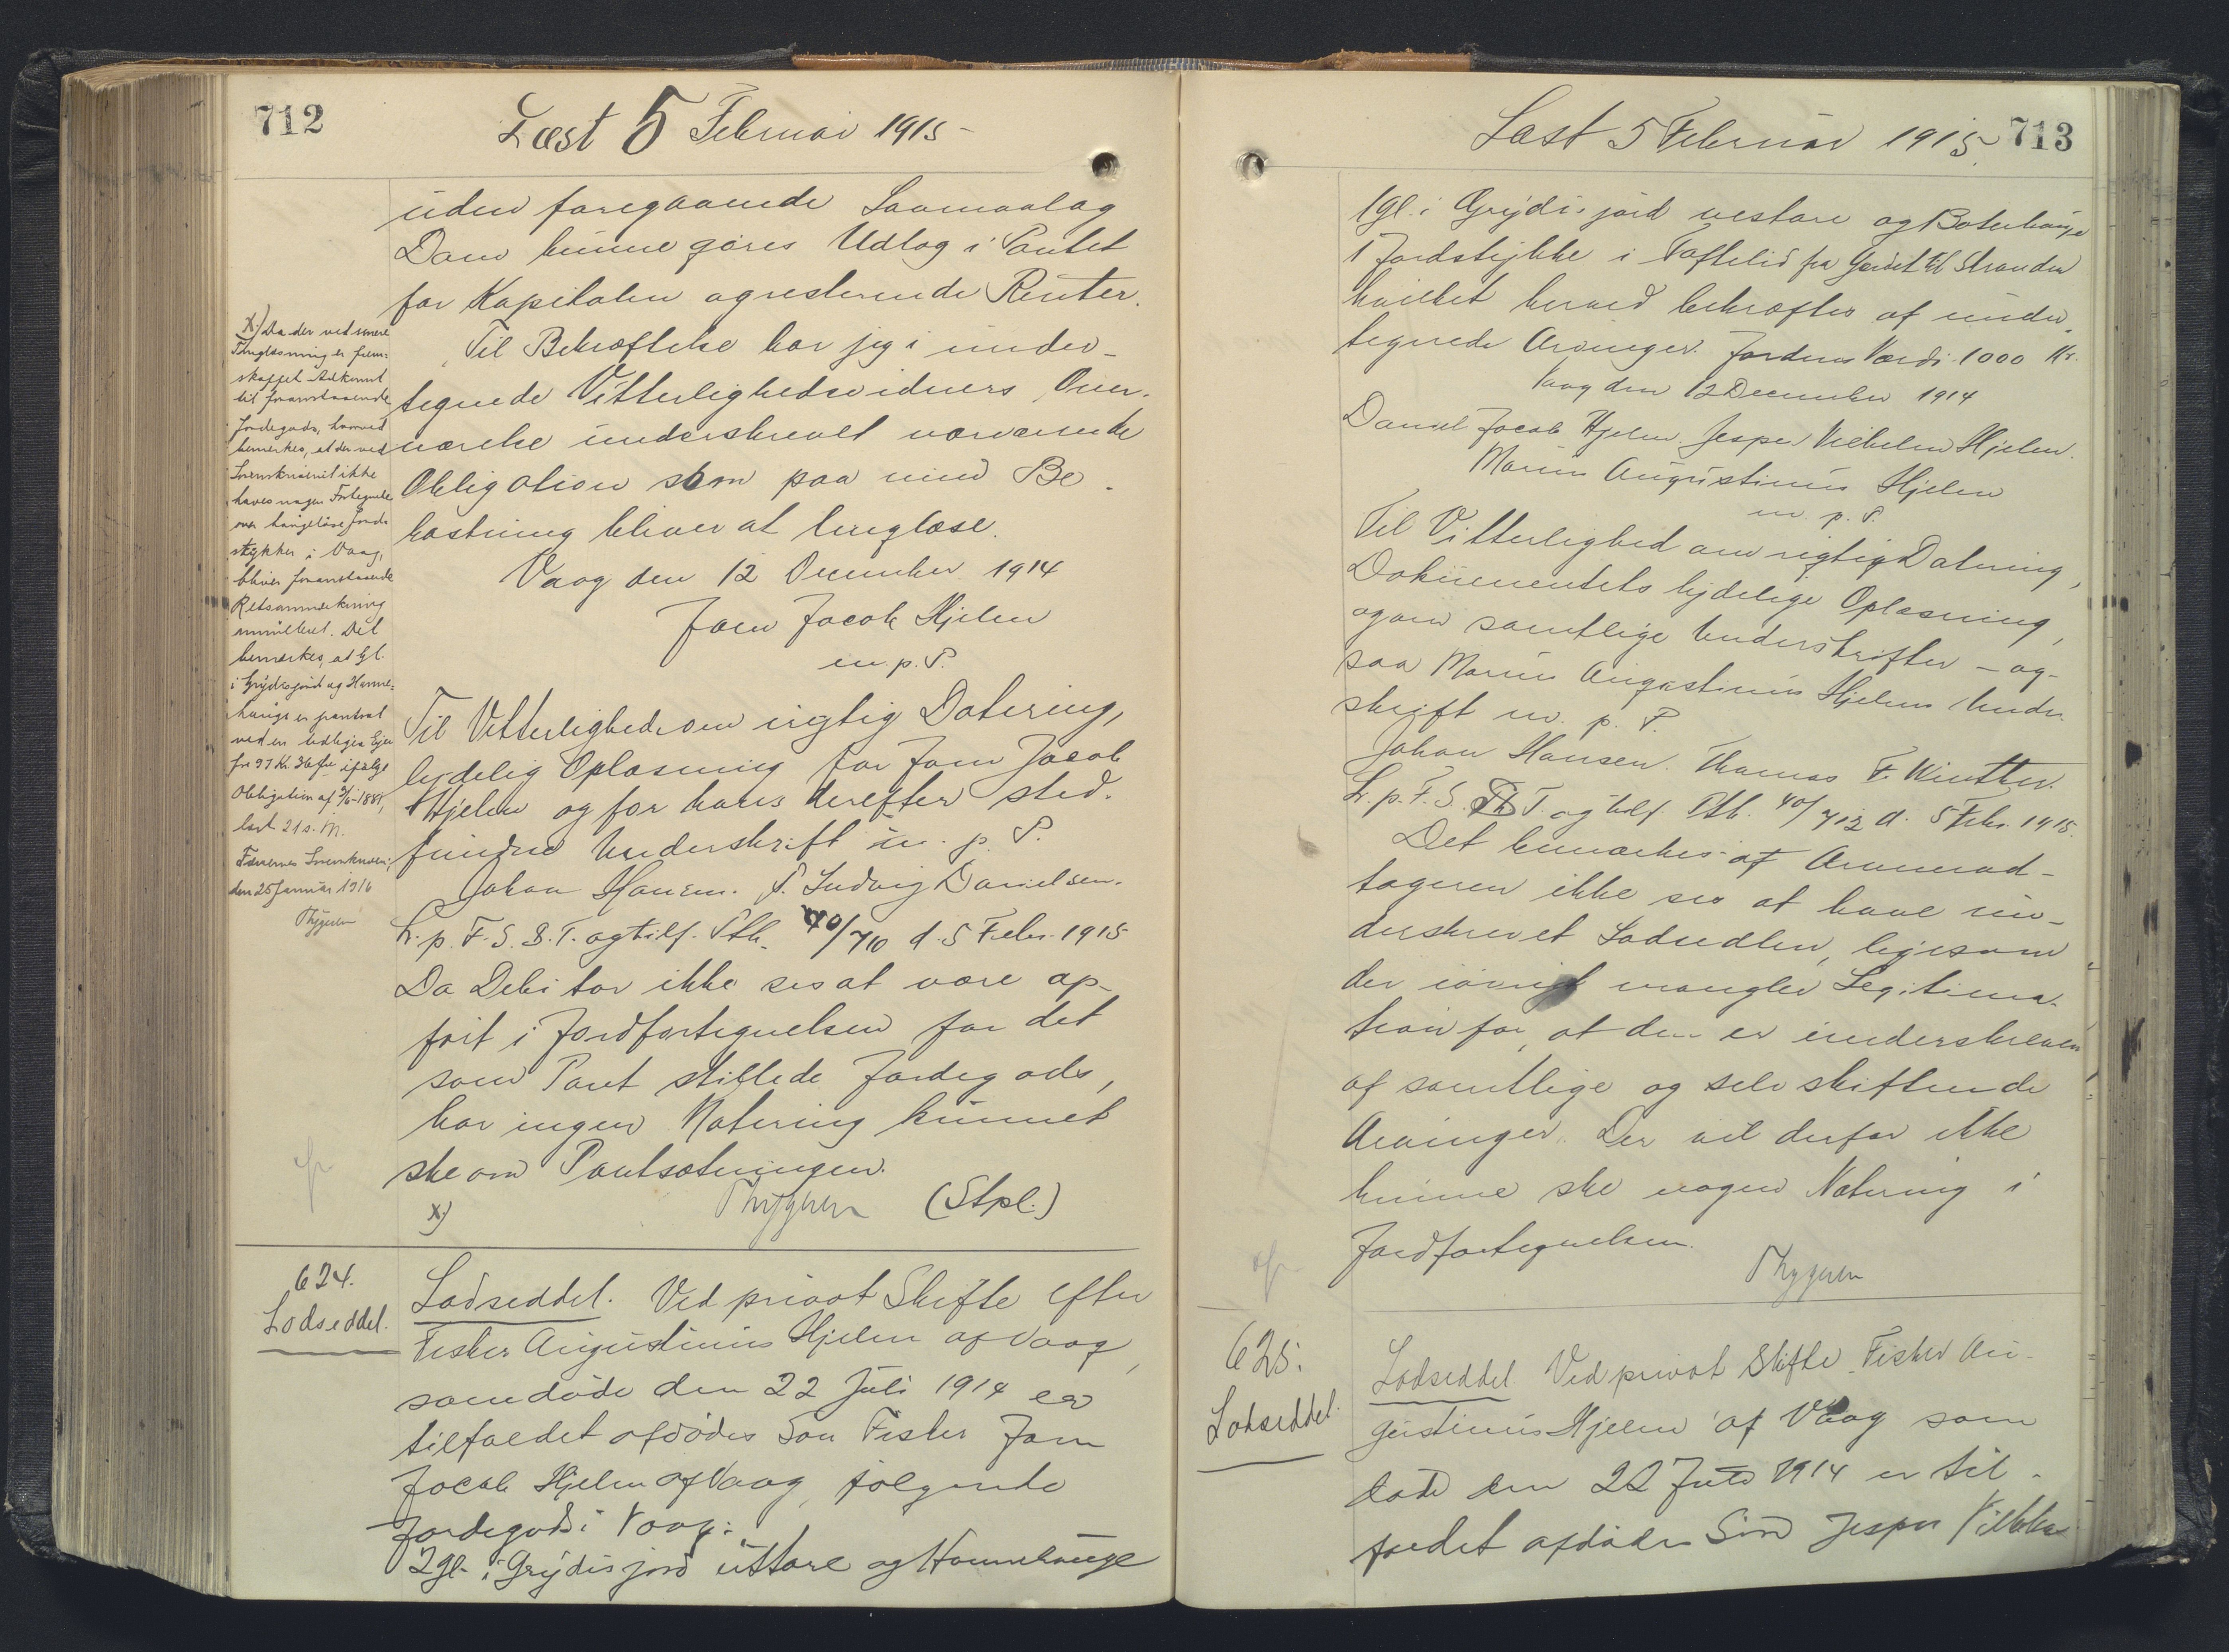 712
Læst 5 Februar 1915-
uden foregaaende Lavmaalag
Dom kunne göres Udlæg i Pantet
for Kapitalen og resterende Renter.
Til Bekræftelse har jeg i under-
tegnede Vitterlighedsvidners Over-
værelse underskrevet nærværende
Obligation som paa min Be-
kostning bliver at tinglæse.
Vaag den 12 December 1914
Joen Jacob Hjelm
m. p. P.
Til Vitterlighed om rigtig Datering,
tydelig Oplæsning for Joen Jacob
Hjelm og for hans derefter sted-
fundne Underskrift m. p. P.
Johan Hansen. P. Ludvig Danielsen.
L. p. F. S. S. T. og tilf. Ptb. 40/710 d. 5 Febr. 1915
Da Debitor ikke ses at være op-
fört i Jordfortegnelsen for det
som Pant stillede Jordegods,
har ingen Notering kunnet
ske om Pantsætningen.
x) Thygesen (Stpl.)
x) Da der ved senere
Thinglæsning er frem-
skaffet Adkomst
til foranstaaende
Jordegods, hvorved
bemærkes, at der ved
Sorenskriveriet ikke
haves nogen Fortegnelse
over haugelöse Jord-
stykker i Vaag,
bliver foranstaaende
Retsanmærkning
annulleret. Det
bemærkes, at Gl.
i Grydisjord og Hanne-
hauge er pantsat
ved en tidligere Ejer
for 97 Kr. 36 Öre ifölge
Obligation af 2/6-1881,
læst 21 s. M.
Færøernes Sorenskriveri,
den 25 Januar 1916
Thygesen
624.
Lodseddel.
Lodseddel. Ved privat Skifte efter
Fisker Augustinus Hjelm af Vaag,
som döde den 22 Juli 1914 er
tilfaldet afdödes Sön Fisker Joen
Jocob Hjelm af Vaag, fölgende
Jordegods i Vaag:
2 Gl. i Grydisjord uttare og Hannehauge
Læst 5 Februar 1915. 713
1 Gl. i Grydisjord vestare og Boterhauge
1 Jordstykke i Toftelid fra Gærdet til Stranden
hvilket herved bekræftes af under-
tegnede Arvinger. Jordens Værdi 1000 Kr.
Vaag den 12 December 1914
Daniel Jacob Hjelm. Jesper Vilhelm Hjelm.
Marius Augustinus Hjelm
m. p. P.
Til Vitterlighed om rigtig Datering,
Dokumentets tydelige Oplæsning,
og om samtlige Underskrifter - og-
saa Marius Augustinus Hjelms Under-
skrift m. p. P.
Johan Hansen. Thomas F. Winther.
L. p. F. S. T. og tilf. Ptb. 40/712 d. 5 Febr. 1915.
Det bemærkes at Arvemod-
tageren ikke ses at have un-
derskrevet Lodsedlen, ligesom
der iövrigt mangler Legitima-
tion for, at den er underskreven
af samtlige og selv skiftende
Arvinger. Der vil derfor ikke
kunne ske nogen Notering i
Jordfortegnelsen.
Thygesen
625.
Lodseddel.
Lodseddel. Ved privat Skifte Fisker Au-
gustinus Hjelm af Vaag som
döde den 22 Juli 1914 er til-
faldet afdödes Sön Jesper Vilhelm